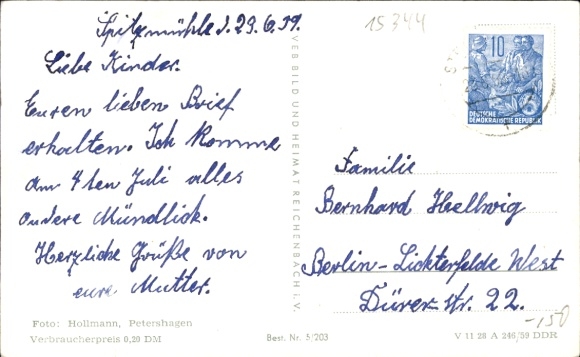 Spitzmühle d. 29.6.59.
15344
Liebe Kinder.
Euren lieben Brief
erhalten. Ich komme
am 4ten Juli alles
andere Mündlich.
Herzliche Grüße von
eure Mutter.
VEB BILD UND HEIMAT REICHENBACH i. V.
10
DEUTSCHE
DEMOKRATISCHE REPUBLIK
Familie
Bernhard Hellwig
Berlin-Lichterfelde West
Dürer-Str. 22.
-,150
Foto: Hollmann, Petershagen
Verbraucherpreis 0,20 DM
Best. Nr. 5/203
V 11 28 A 246/59 DDR